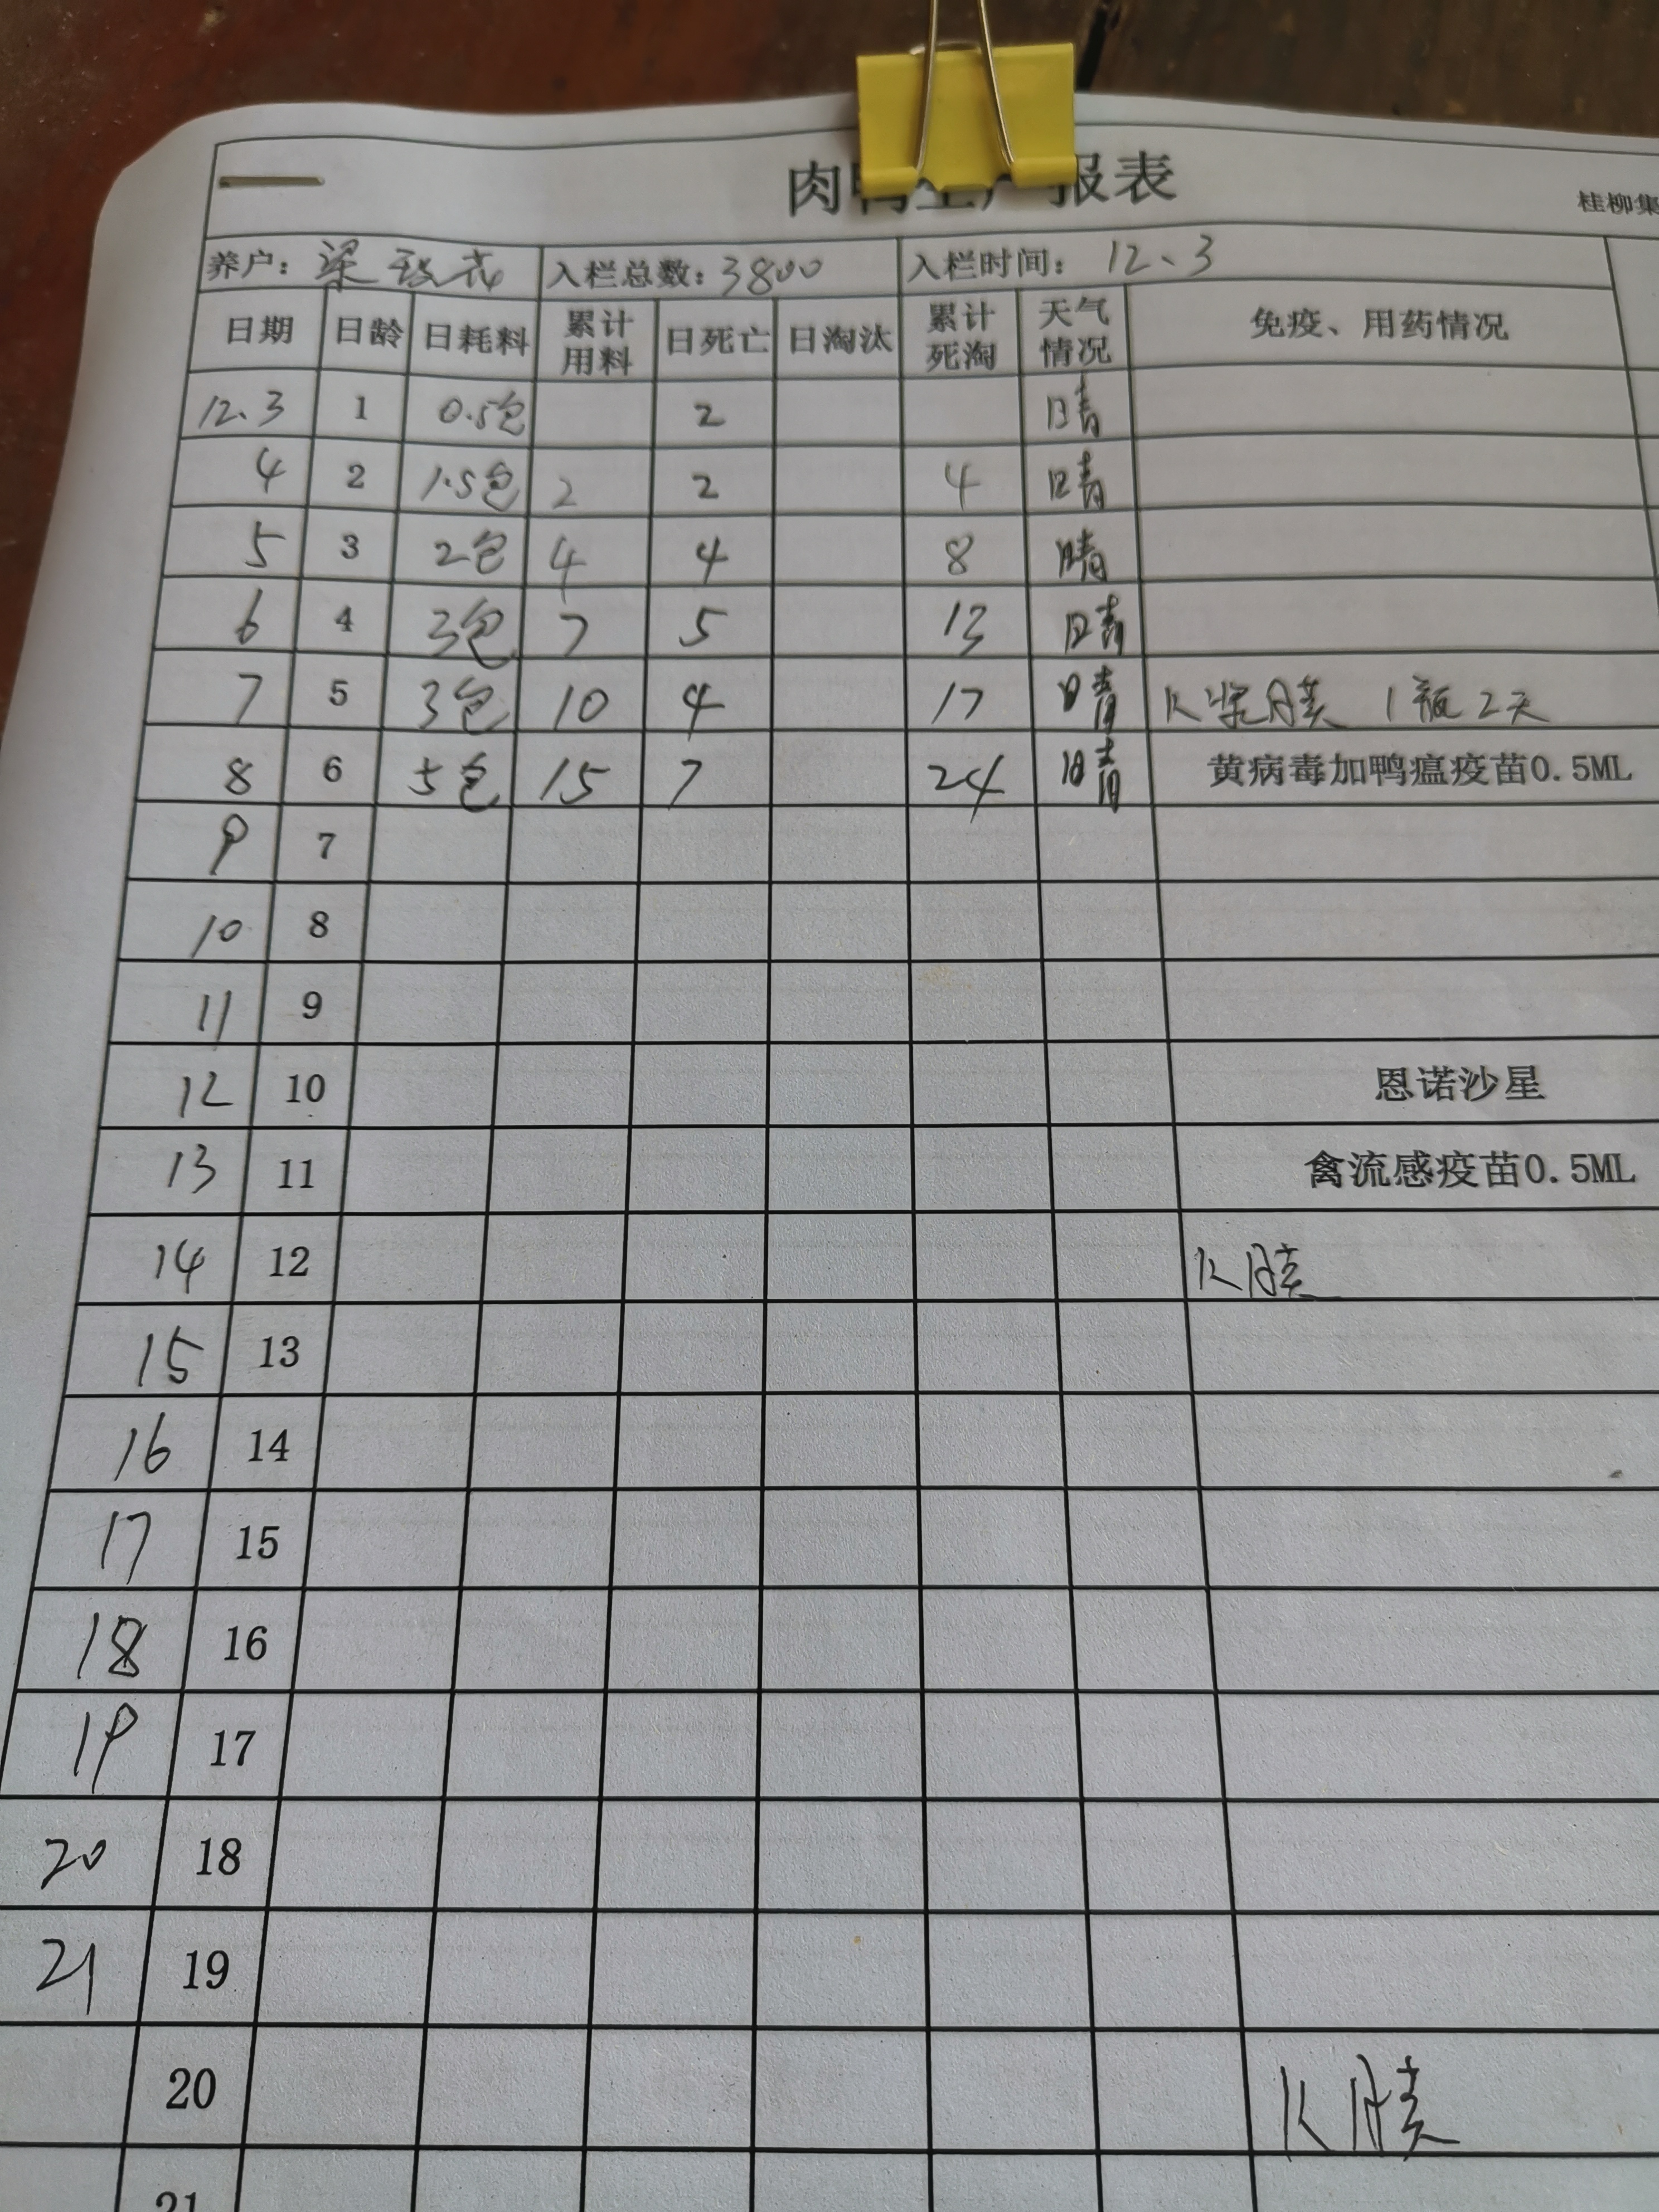 肉鸭生产报表
桂柳集
养户: 梁 入栏总数: 3800 入栏时间: 12、3
日期 日龄 日耗料 累计用料 日死亡 日淘汰 累计死淘 天气情况 免疫、用药情况
12.3 1 0.5包 2 晴
4 2 1.5包 2 2 4 晴
5 3 2包 4 4 8 晴
6 4 3包 7 5 13 晴
7 5 3包 10 4 17 晴 1瓶2天
8 6 5包 15 7 24 晴 黄病毒加鸭瘟疫苗0.5ML
9 7
10 8
11 9
12 10 恩诺沙星
13 11 禽流感疫苗0.5ML
14 12
15 13
16 14
17 15
18 16
19 17
20 18
21 19
20
21